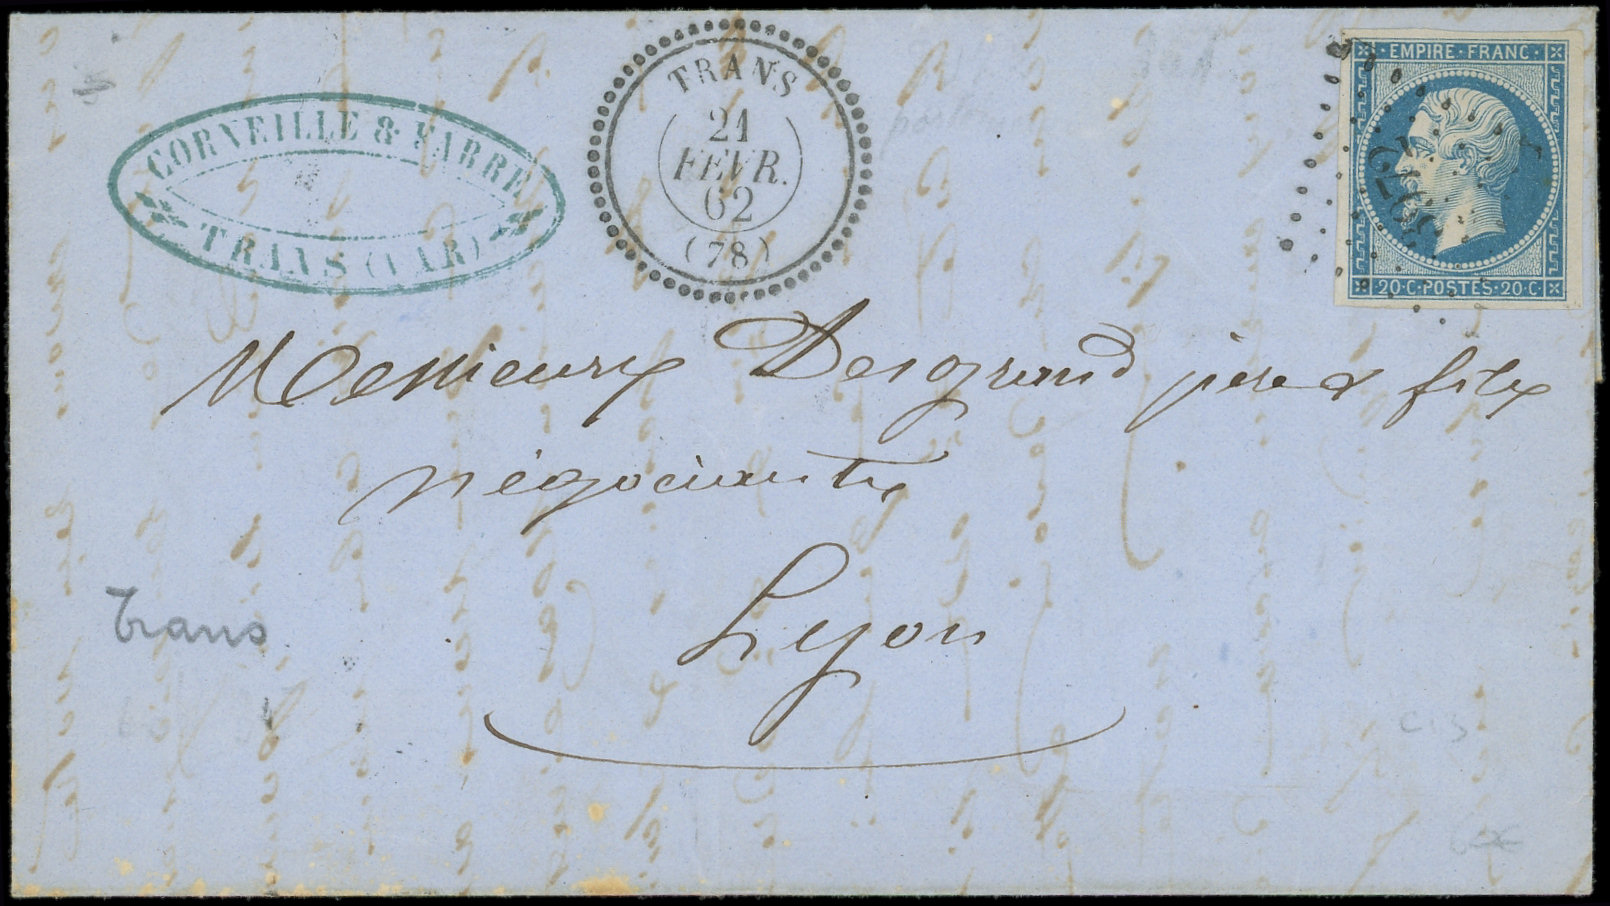 CORNEILLE & FABRE
TRANS (VAR)
TRANS
21
FEVR.
62
(78)
EMPIRE · FRANC ·
20 · C · POSTES · 20 · C ·
Messieurs Desgrand père & fils
négociants
Lyon
Trans